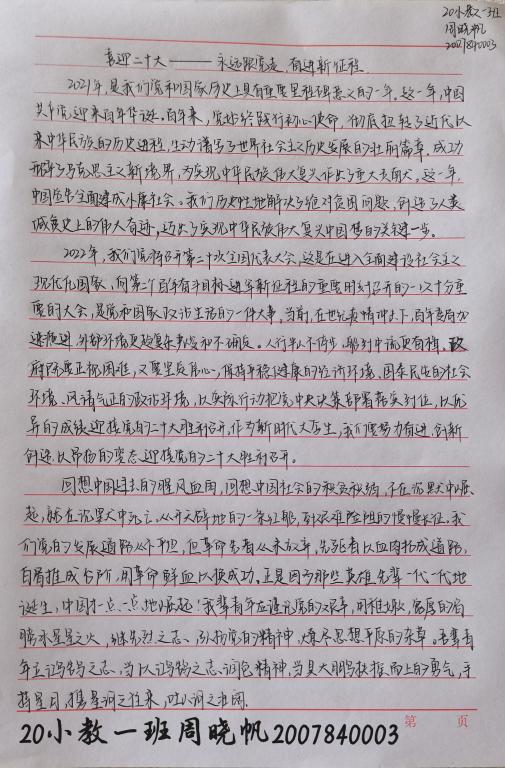 20小教一班
周晓帆
2007840003
喜迎二十大——永远跟党走,奋进新征程
2021年,是我们党和国家历史上具有重要里程碑意义的一年。这一年,中国
共产党迎来百年华诞。百年来,党始终践行初心使命,彻底扭转了近代以
来中华民族的历史进程,生动谱写了世界社会主义历史发展的壮丽篇章,成功
开辟了马克思主义新境界,为实现中华民族伟大复兴作出了重大贡献。这一年,
中国宣告全面建成小康社会。我们历史性地解决了绝对贫困问题,创造了人类
减贫史上的伟大奇迹,迈出了实现中华民族伟大复兴中国梦的关键一步。
2022年,我们党将召开第二十次全国代表大会,这是在进入全面建设社会主义
现代化国家,向第二个百年奋斗目标进军新征程的重要时刻召开的一次十分重
要的大会,是党和国家政治生活的一件大事。当前,在世纪疫情冲击下,百年变局加
速演进,外部环境更趋复杂严峻和不确定。人行半山不停步,船到中流更奋楫,政
府既要正视困难,又要坚定信心,保持平稳健康的经济环境、国泰民安的社会
环境、风清气正的政治环境,以实际行动把党中央决策部署落实到位,以优
异的成绩迎接党的二十大胜利召开,作为新时代大学生,我们要努力奋进,创新
创造,以昂扬的姿态迎接党的二十大胜利召开。
回想中国过去的腥风血雨,回想中国社会的积贫积弱,不在沉默中爆
起,就在沉默中死亡。从开天辟地的一条红船,到艰难险阻的慢慢长征。我
们党的发展道路从不平坦,但革命先者从未放弃,先驱者以血肉拓成道路,
白骨推成台阶,用革命鲜血以换成功。正是因为那些英雄先辈一代一代地
诞生,中国才一点一点地崛起!我辈青年应谨记党的艰辛,用稚嫩、宽厚的肩
膀承星星之火,继先烈之志、弘扬党的精神,燎尽思想平原的杂草。吾辈青
年立鸿鹄之志,当以鸿鹄之志润色精神,当具大鹏扶摇而上的勇气,手
摘星月,携星河之往来,吐山河之壮阔。
第 页
20小教一班周晓帆2007840003